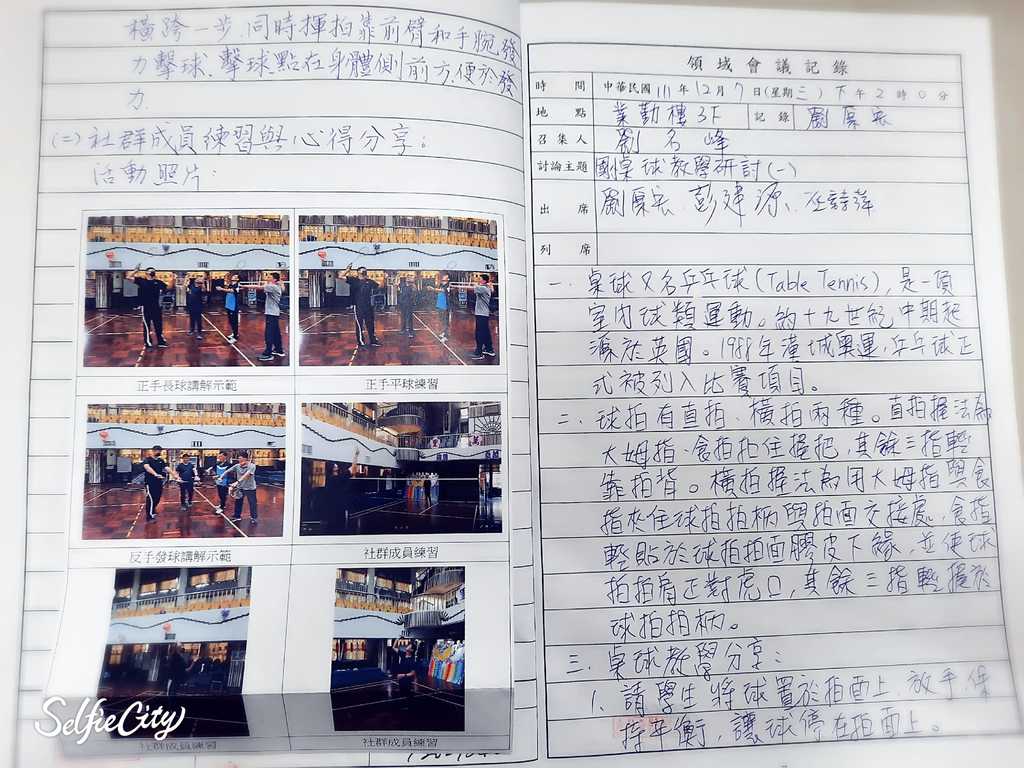 橫跨一步,同時揮拍靠前臂和手腕發
力擊球、擊球點在身體側前方,便於發
力.
(二)社群成員練習與心得分享:
活動照片:
正手長球講解示範
正手平球練習
反手發球講解示範
社群成員練習
社群成員練習
社群成員練習
SelfieCity
領域會議記錄
時間 中華民國 111 年 12 月 7 日(星期三) 下午 2 時 0 分
地點 業勤樓3F 記錄
召集人 劉名峰
討論主題 桌球教學研討(一)
出席 彭建源、
列席
一.桌球又名乒乓球(Table Tennis),是一項
室內球類運動。約十九世紀中期起
源於英國。1988年漢城奧運,乒乓球正
式被列入比賽項目。
二.球拍有直拍、橫拍兩種。直拍握法為
大姆指、食指扣住握把,其餘三指輕
靠拍背。橫拍握法為用大姆指與食
指夾住球拍拍柄與拍面交接處,食指
輕貼於球拍拍面膠皮下緣,並使球
拍拍肩正對虎口,其餘三指輕握於
球拍拍柄。
三.桌球教學分享:
1.請學生將球置於拍面上,放手,保
持平衡,讓球停在拍面上。